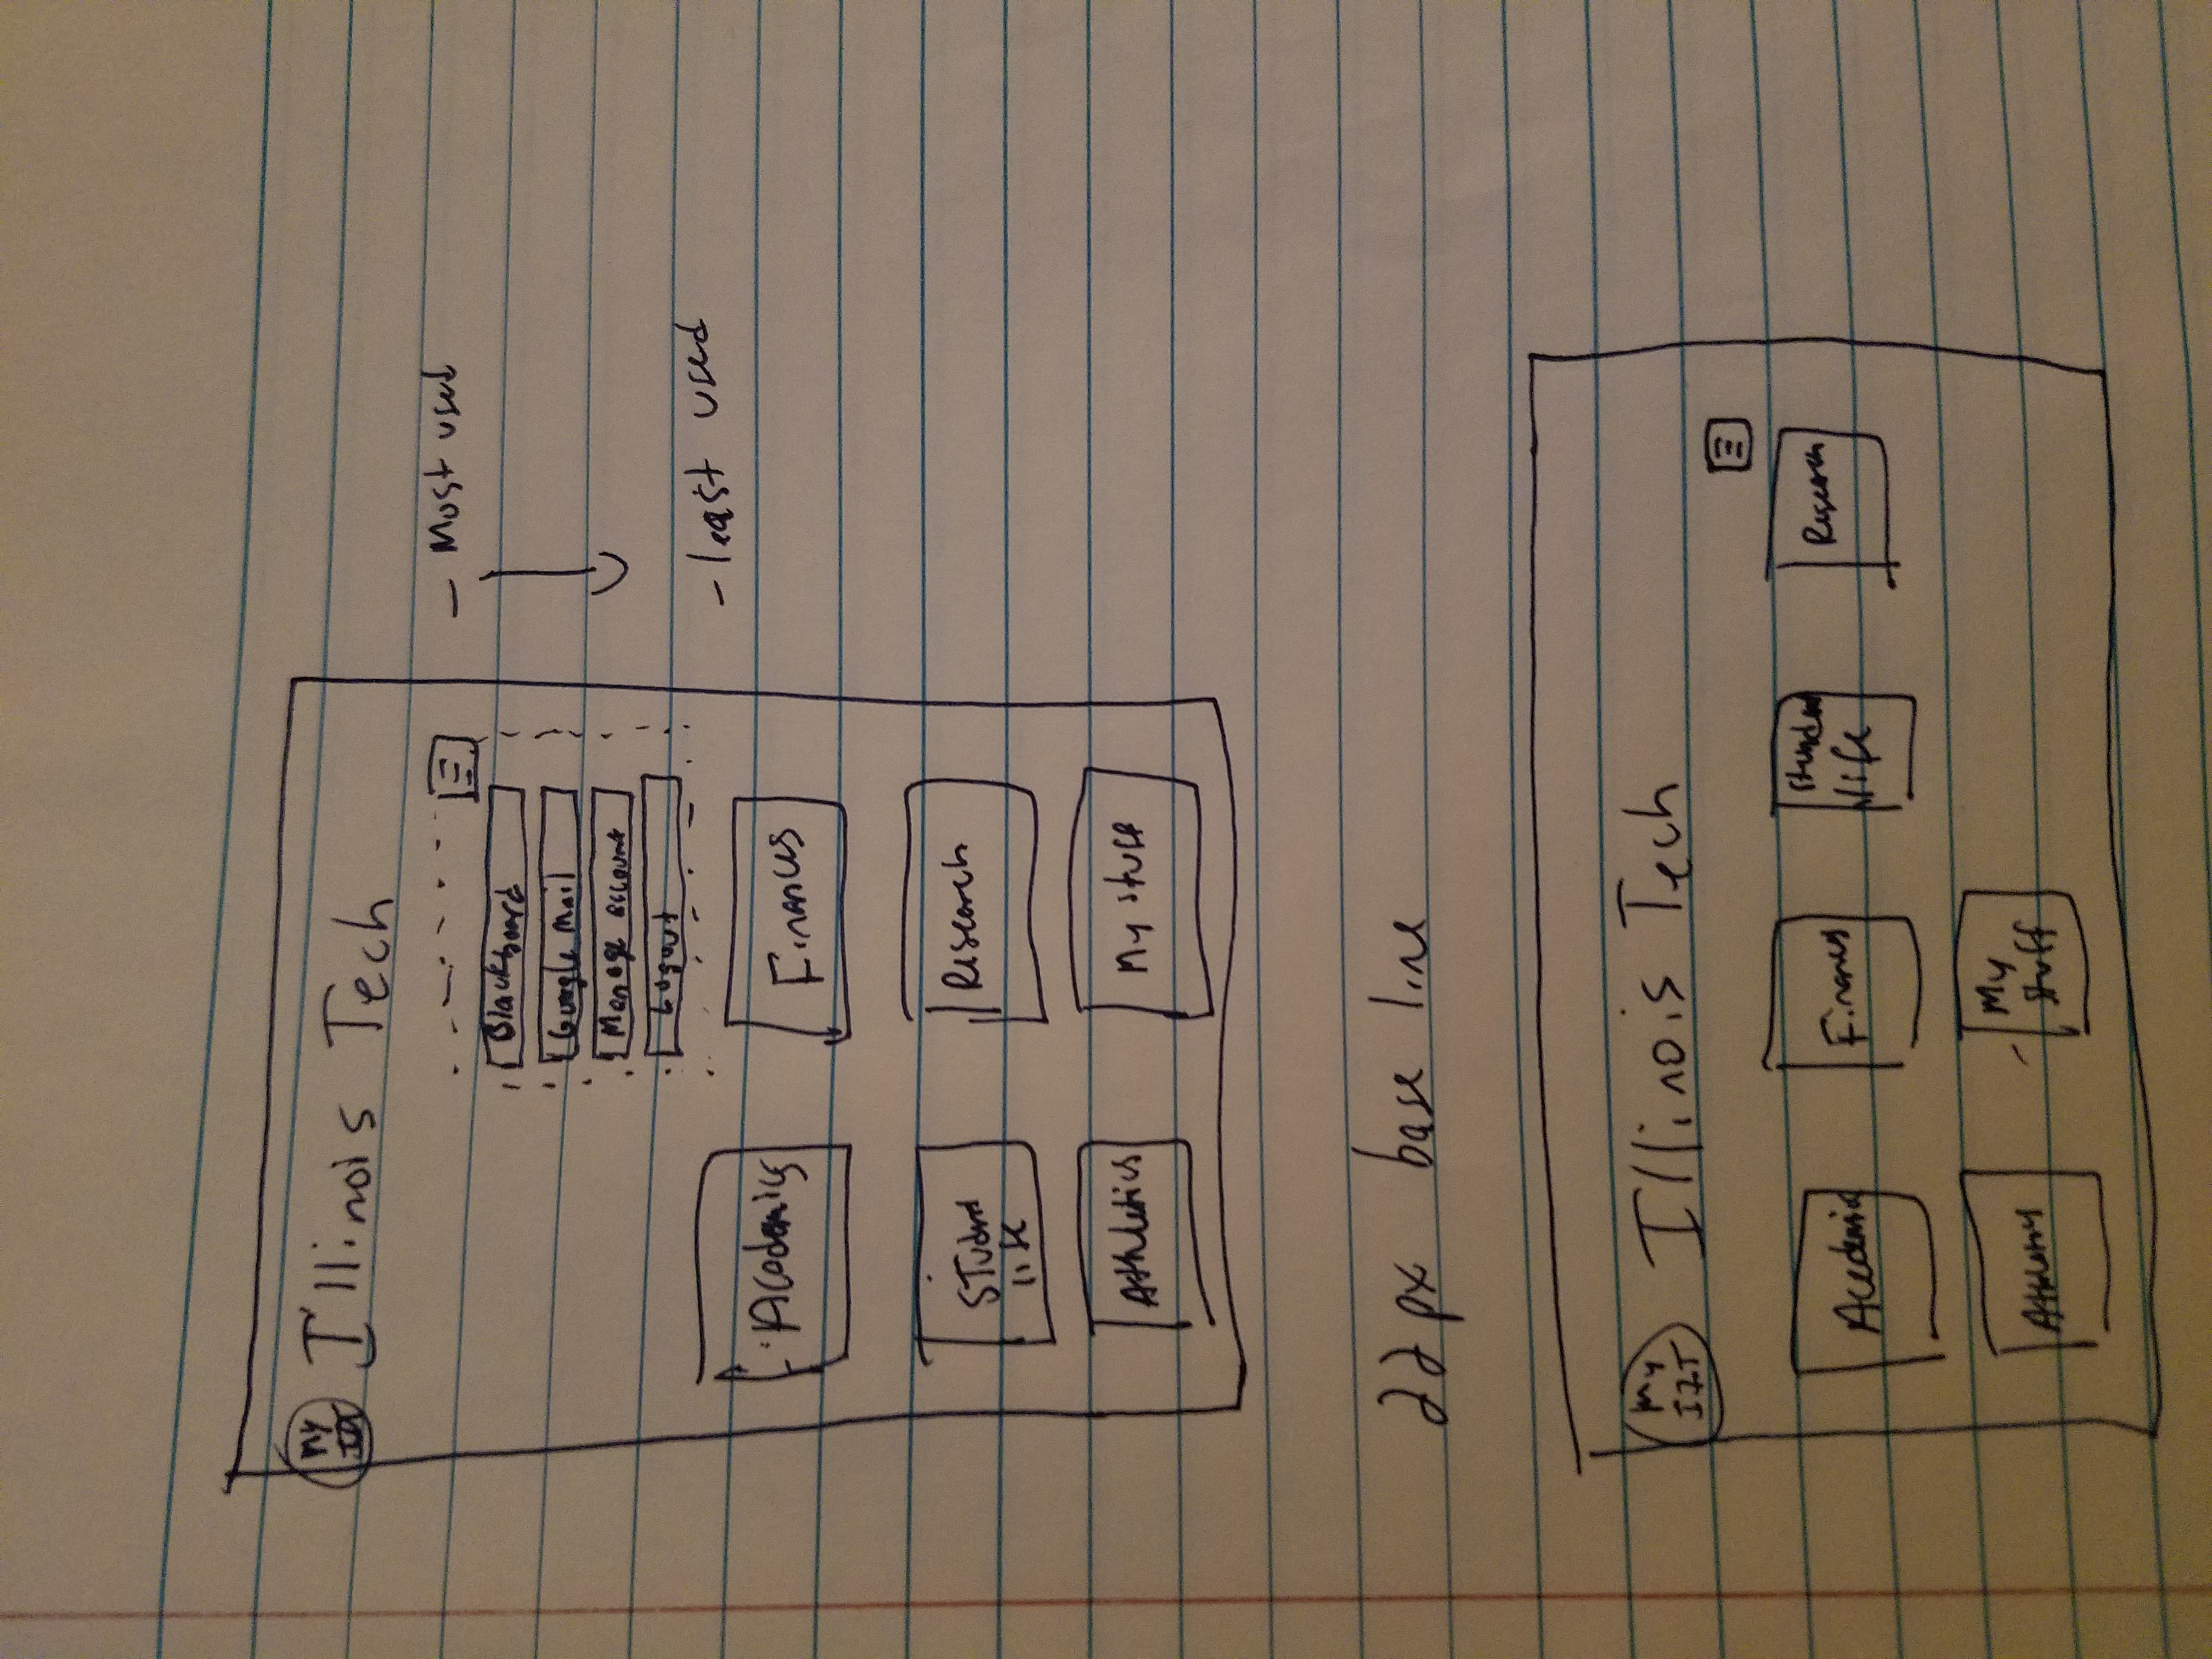 My
IIT
Illinois Tech
Blackboard
- Most used
Google Mail
Manage account
Logout
- least used
Academics
Finances
Student
life
Research
Athletics
My stuff
22px base line
My
IIT
Illinois Tech
Academic
Finances
Student
life
Research
Athletics
My
stuff